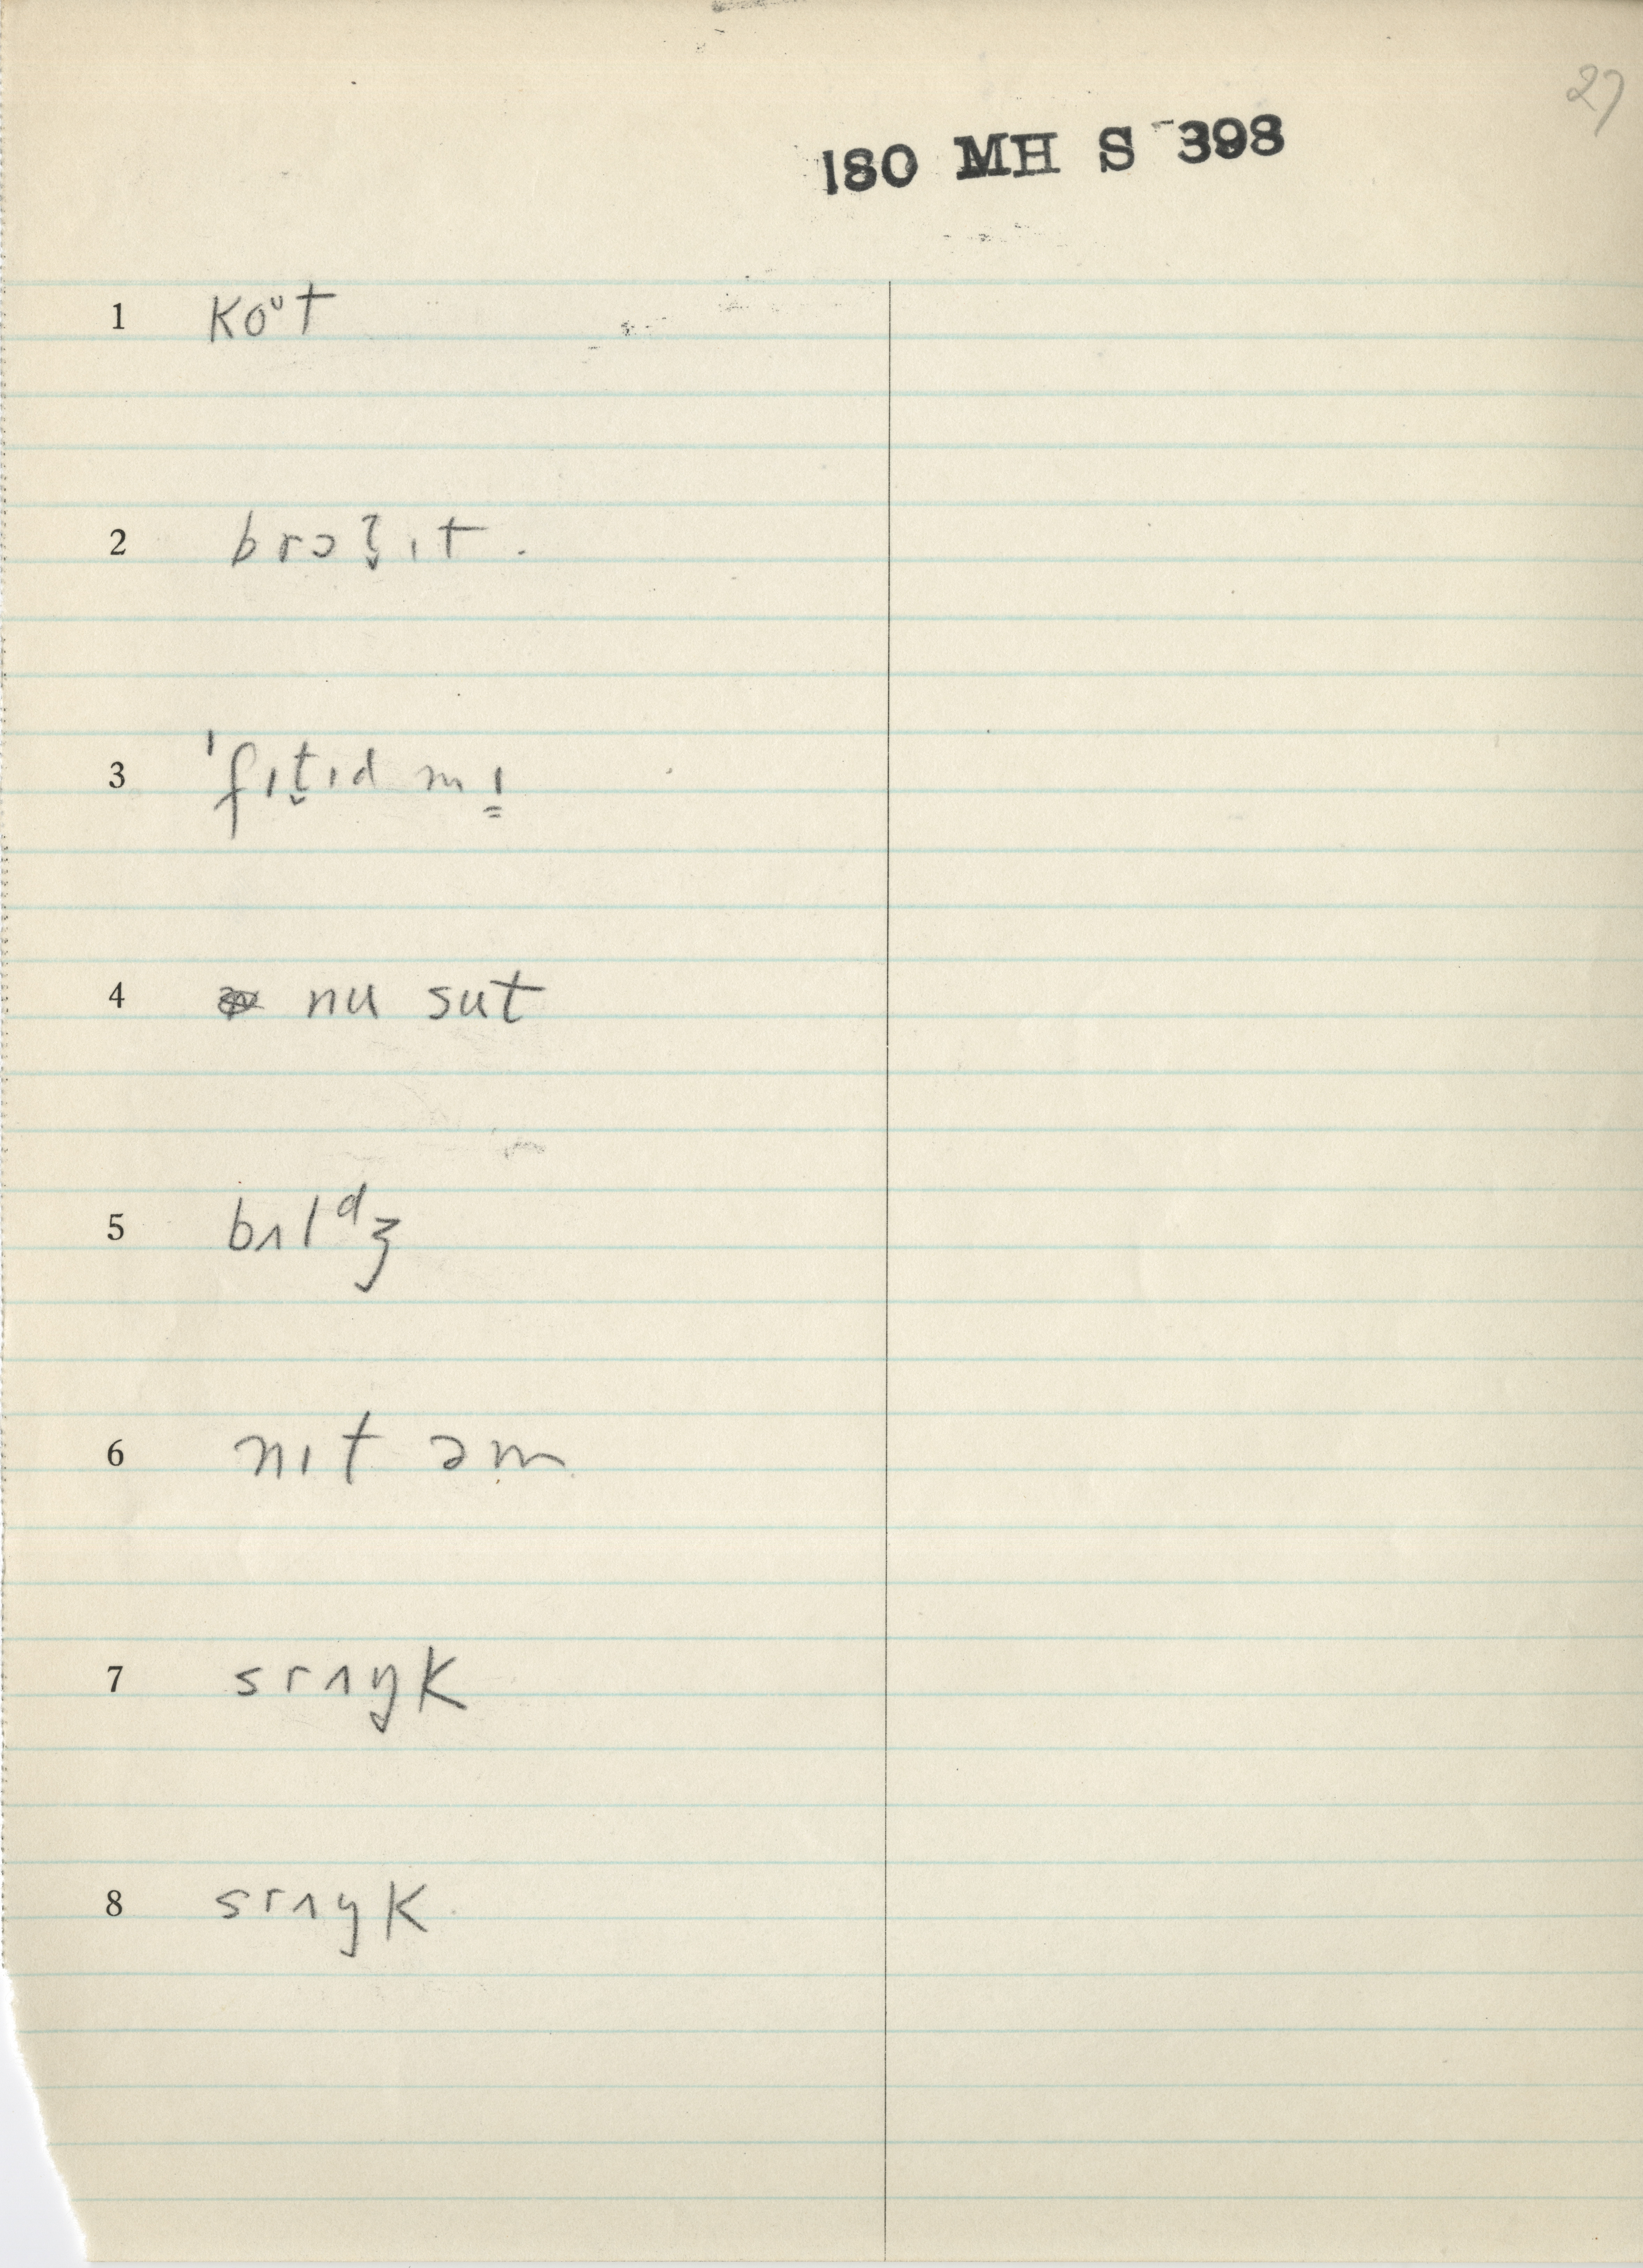 27
180 MH S 398
1 koᶷt
2 brɔʒ̬ɪt.
3 ˈfɪt̬ɪd mɪ̳
4 nu sut
5 bʌlᵈʒ
6 nɪt əm
7 srʌŋk
8 srʌŋk